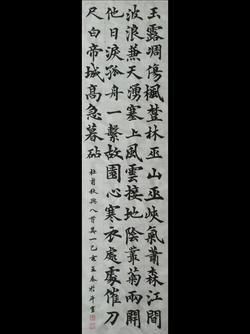 玉露凋傷楓樹林巫山巫峽氣蕭森江間
波浪兼天湧塞上風雲接地陰叢菊兩開
他日淚孤舟一繫故園心寒衣處處催刀
尺白帝城高急暮砧 杜甫秋興八首其一